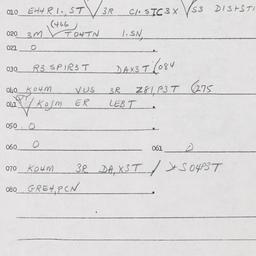 010 EH4R1., ST 3R C1. STC3X S3 D1S+ST1
(466)
020 3M TO4TN 1.SN,
021 0
030 R3 SP1R3T DAX3T (084
040 K04M VUS 3R Z81,P3T (275
041 K0JM ER LEBT
050 0
060 0 061 0
070 K04M 3R DA,X3T / S04P3T
080 GRE4,PCN